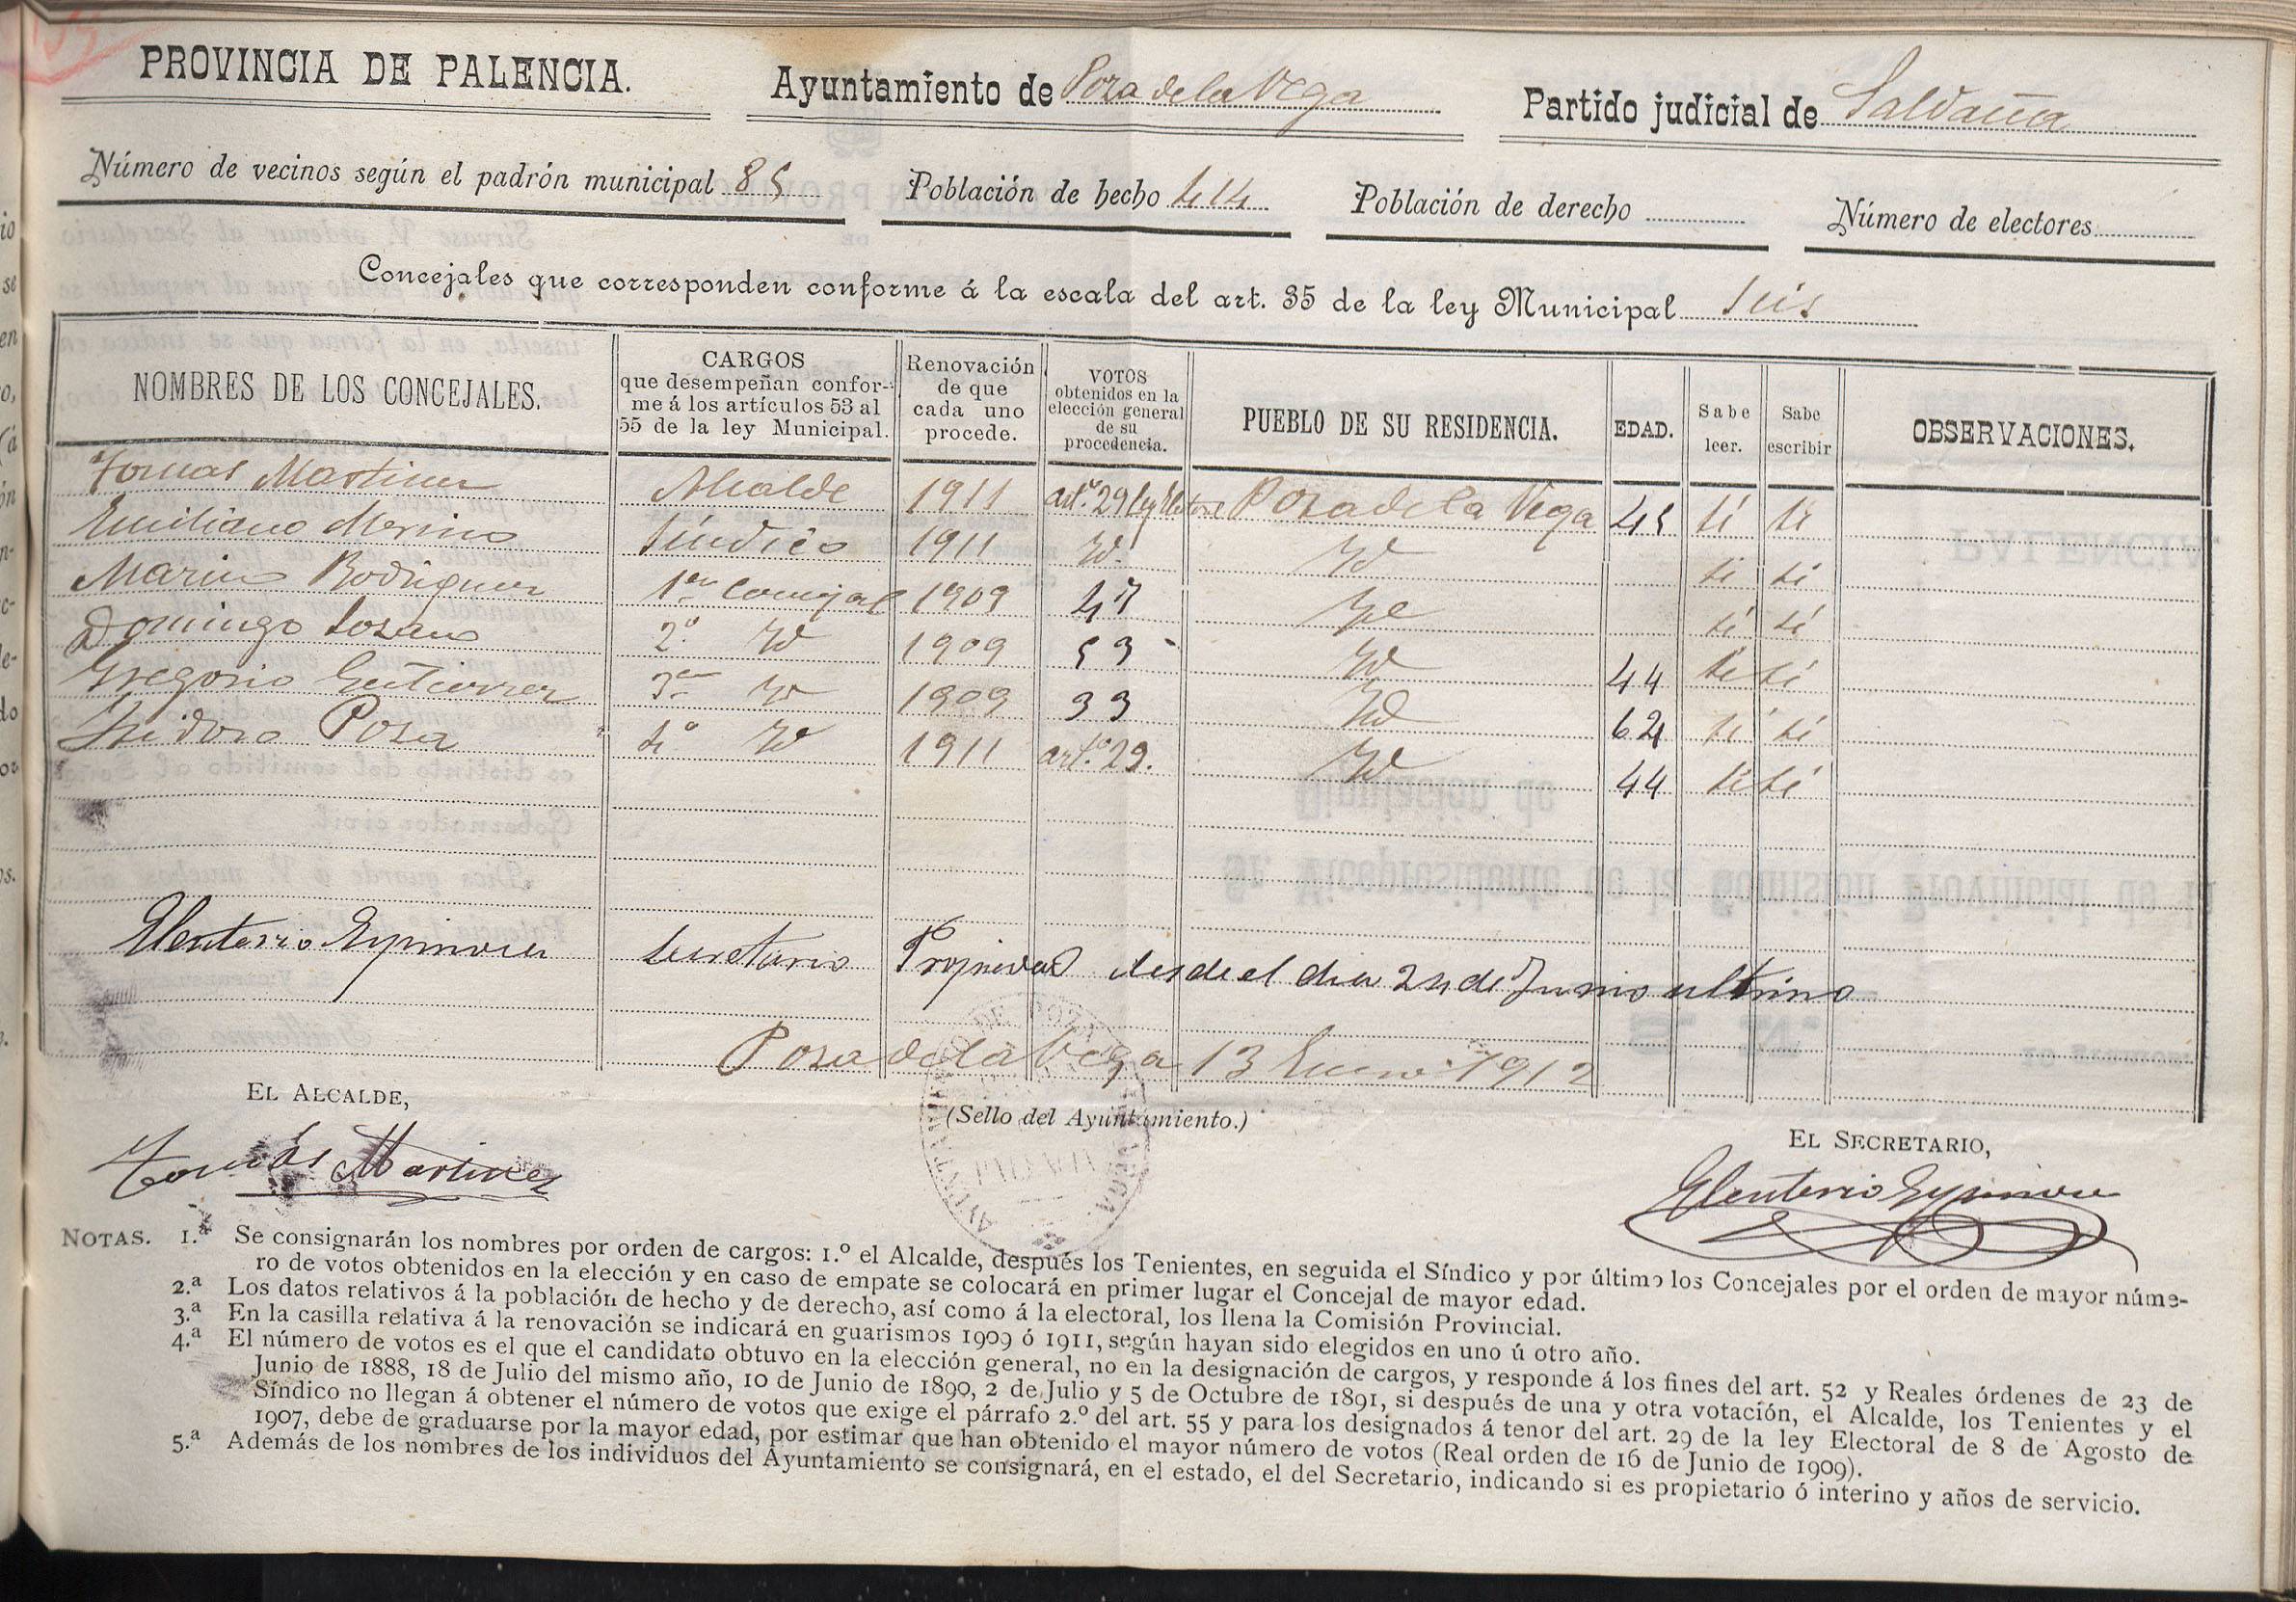 PROVINCIA DE PALENCIA. Ayuntamiento de Poza de la Vega Partido judicial de Saldaña
Número de vecinos según el padrón municipal 85 Población de hecho 414 Población de derecho Número de electores
Concejales que corresponden conforme á la escala del art. 35 de la ley Municipal seis
NOMBRES DE LOS CONCEJALES. CARGOS que desempeñan confor- me á los artículos 53 al 55 de la ley Municipal. Renovación de que cada uno procede. VOTOS obtenidos en la elección general de su procedencia. PUEBLO DE SU RESIDENCIA. EDAD. Sabe leer. Sabe escribir OBSERVACIONES.
Tomas Martinez Alcalde 1911 art.º 29 ley Electoral Poza de la Vega 45 si si
Emiliano Merino Síndico 1911 Id. Id si si
Marino Rodriguez 1er Concejal 1909 47 Id si si
Domingo Lozano 2º Id 1909 53 Id 44 si si
Gregorio Gutierrez 3er Id 1909 33 Id 62 si si
Isidoro Poza 4º Id 1911 art.º 29. Id 44 si si
Eleuterio Espinosa Secretario Propiedad desde el dia 24 de Junio ultimo
Poza de la Vega 13 Enero 1912
EL ALCALDE,
(Sello del Ayuntamiento.)
EL SECRETARIO,
Tomás Martinez
Eleuterio Espinosa
NOTAS. 1.ª Se consignarán los nombres por orden de cargos: 1.º el Alcalde, después los Tenientes, en seguida el Síndico y por último los Concejales por el orden de mayor núme-
ro de votos obtenidos en la elección y en caso de empate se colocará en primer lugar el Concejal de mayor edad.
2.ª Los datos relativos á la población de hecho y de derecho, así como á la electoral, los llena la Comisión Provincial.
3.ª En la casilla relativa á la renovación se indicará en guarismos 1909 ó 1911, según hayan sido elegidos en uno ú otro año.
4.ª El número de votos es el que el candidato obtuvo en la elección general, no en la designación de cargos, y responde á los fines del art. 52 y Reales órdenes de 23 de
Junio de 1888, 18 de Julio del mismo año, 10 de Junio de 1890, 2 de Julio y 5 de Octubre de 1891, si después de una y otra votación, el Alcalde, los Tenientes y el
Síndico no llegan á obtener el número de votos que exige el párrafo 2.º del art. 55 y para los designados á tenor del art. 29 de la ley Electoral de 8 de Agosto de
1907, debe de graduarse por la mayor edad, por estimar que han obtenido el mayor número de votos (Real orden de 16 de Junio de 1909).
5.ª Además de los nombres de los individuos del Ayuntamiento se consignará, en el estado, el del Secretario, indicando si es propietario ó interino y años de servicio.